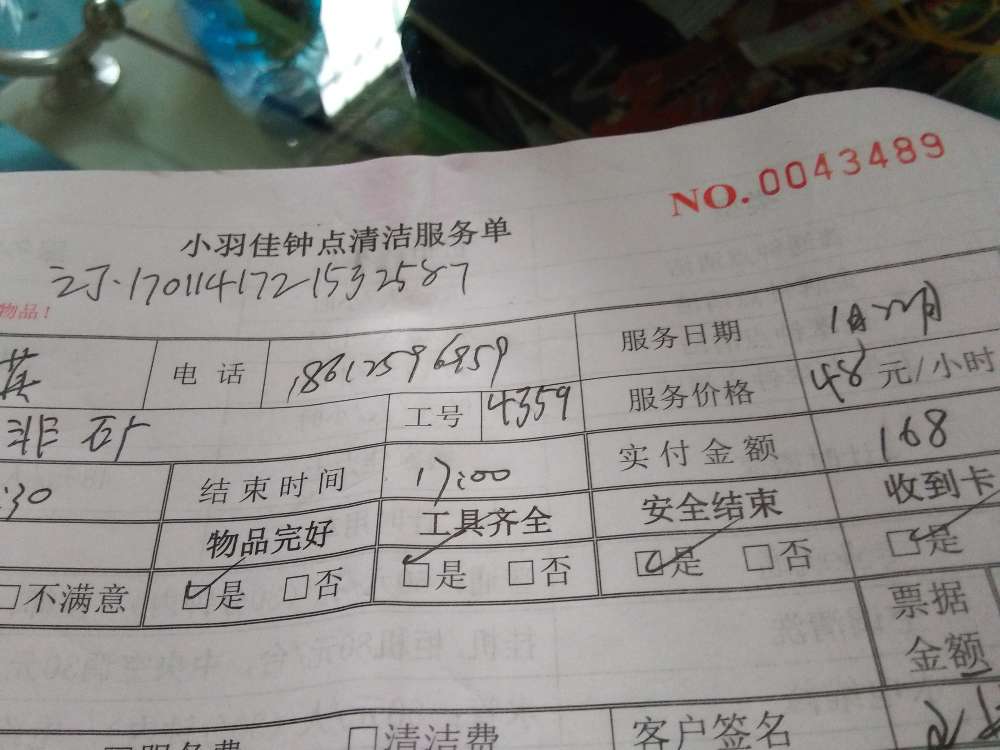 NO.0043489
小羽佳钟点清洁服务单
170114172-1532587
物品!
英 电话 18612596859 服务日期 1月22日
工号 4359 服务价格 48元/小时
:30 结束时间 17:00 实付金额 168
物品完好 工具齐全 安全结束 收到卡
□不满意 □是 □否 □是 □否 □是 □否 □是
票据
金额
□服务费 □清洁费 客户签名